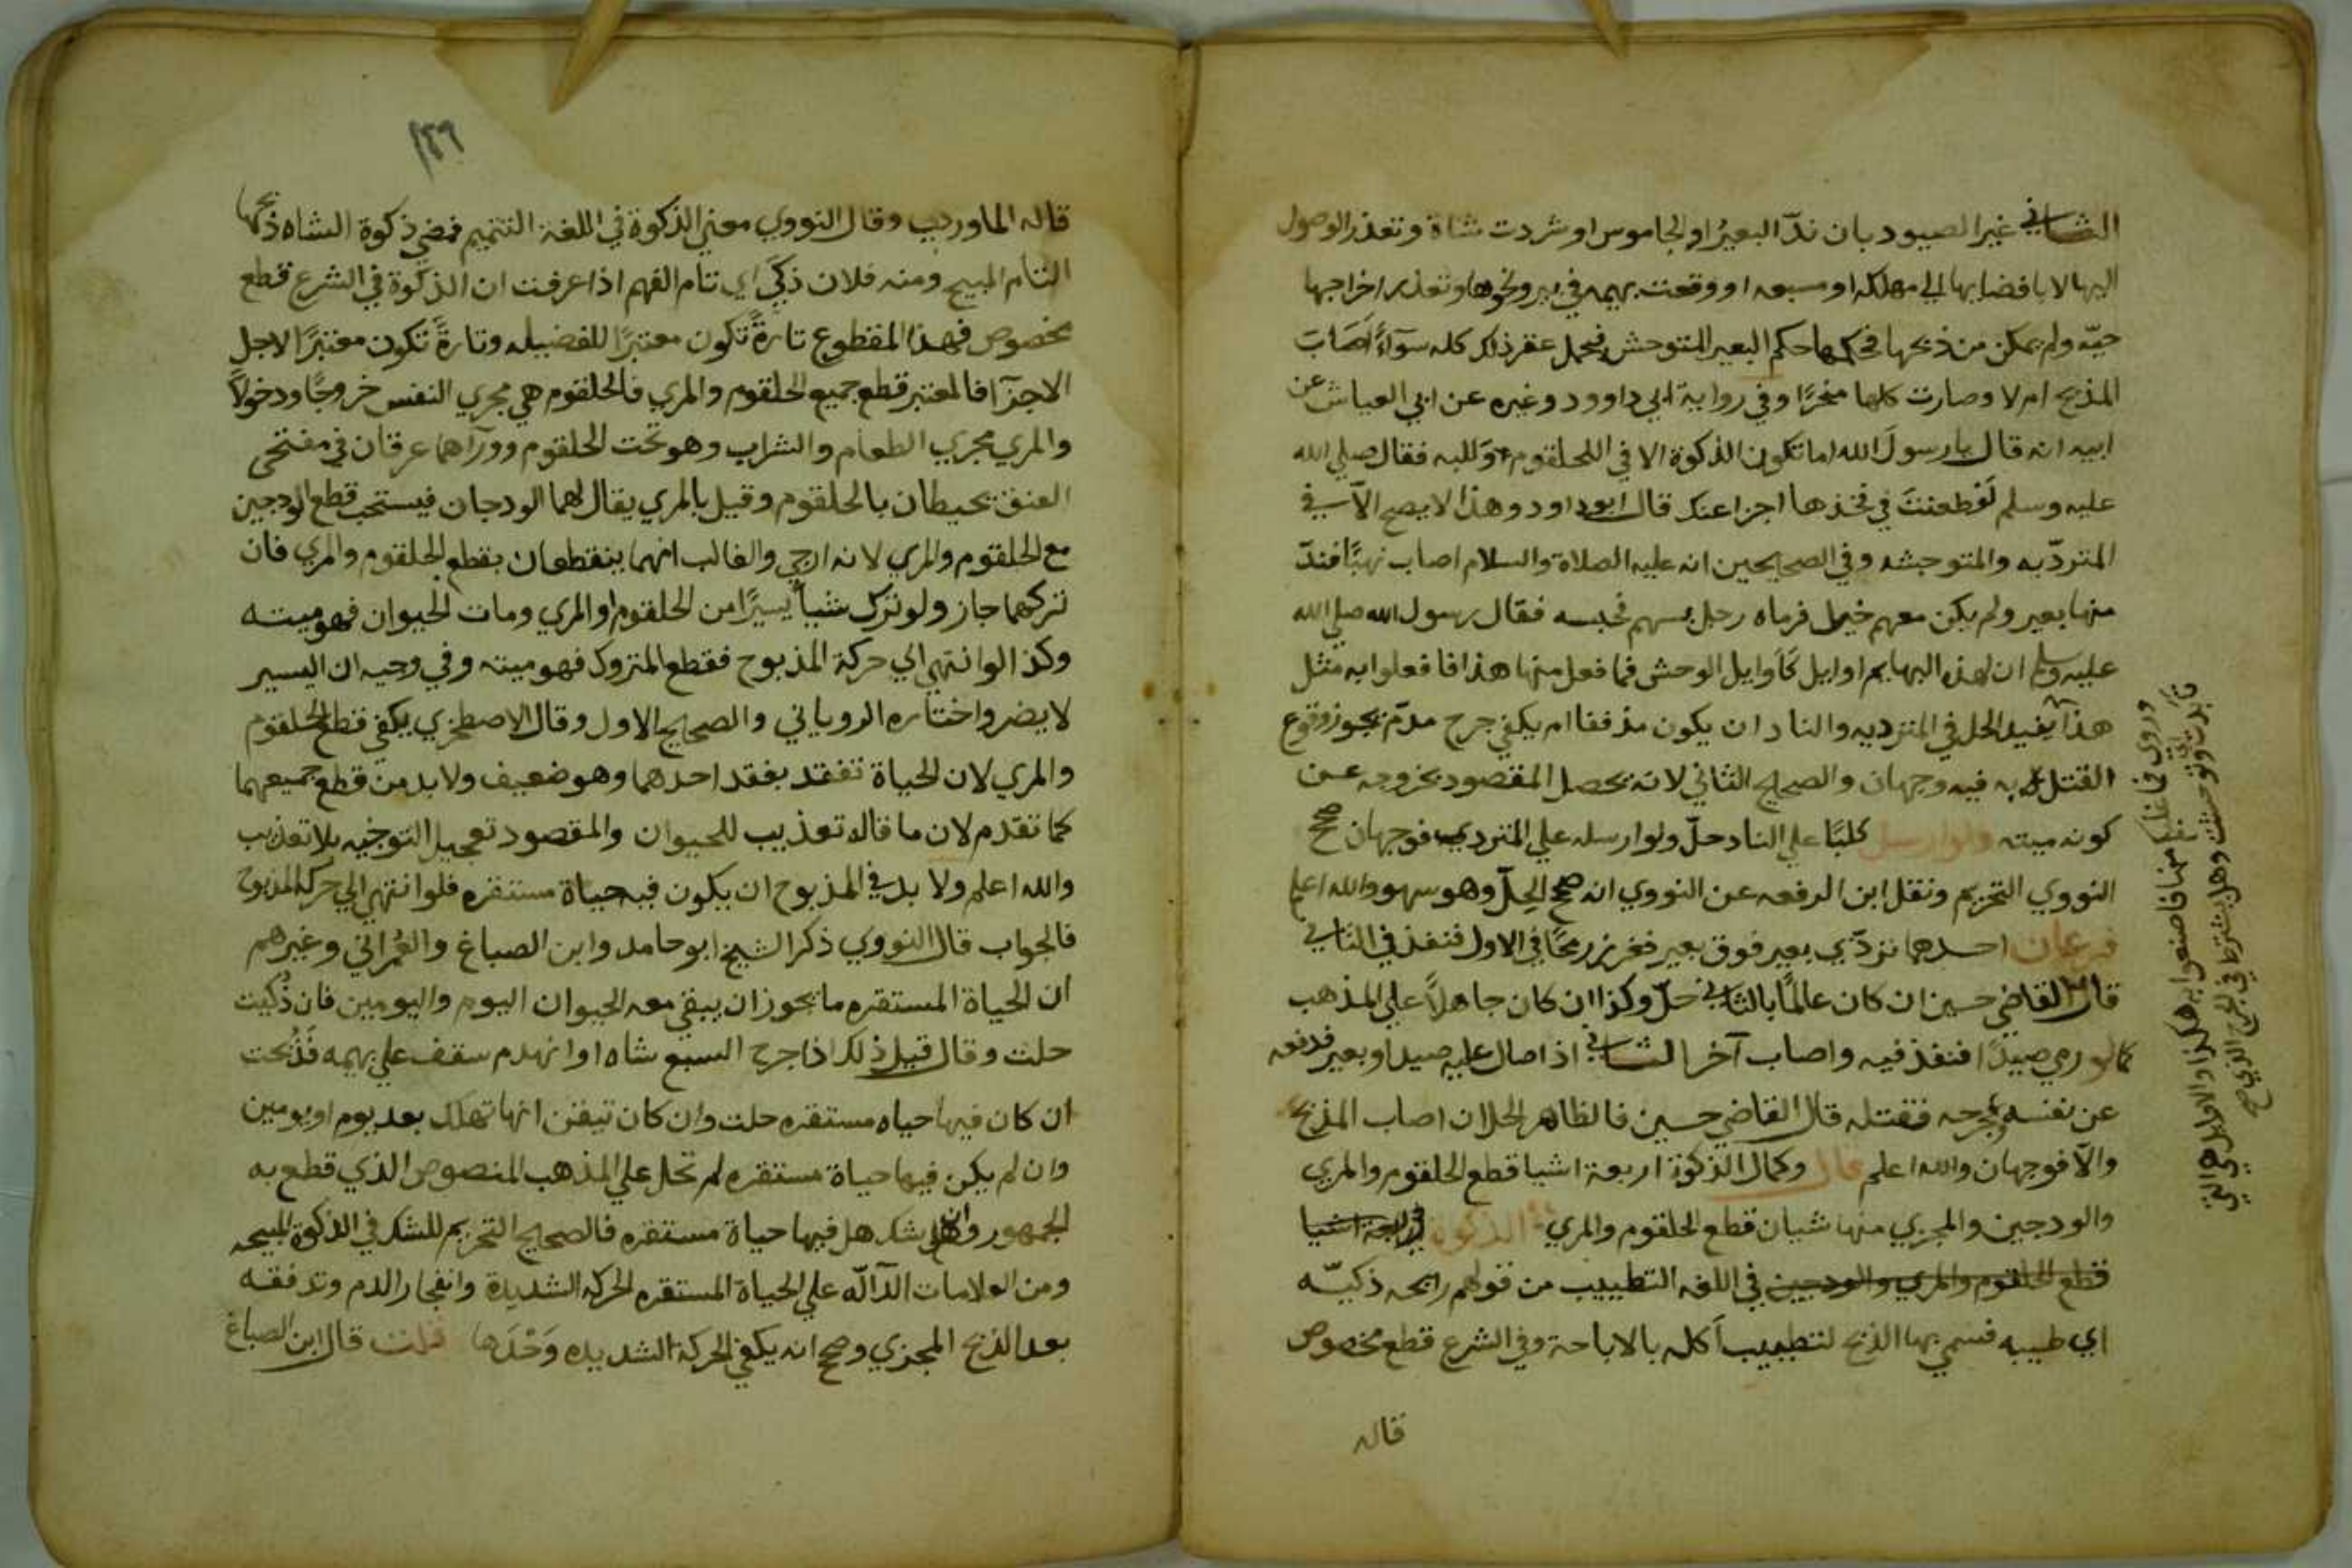 الثاني غير الصيود بان ندّ البعيرُ او الجاموس او شردت شاة وتعذر الوصول
اليها الا بافضايها الي مهلكه او مسبعه او وقعت بهيمه في بير ونحوها وتعذر اخراجها
حيّه ولم يمكن من ذبحها فحكمها حكم البعير المتوحش فيحل عقر ذلك كله سوآءً اصاب
المذبح ام لا وصارت كلها منحرًا وفي رواية ابي داوود وغيره عن ابي العياش عن
ابيه انه قال يا رسولَ الله اما تكون الذكوة الا في الحلقوم واللبه فقال صلي الله
عليه وسلم لَو طعنتَ في فخذها اجزا عنك قال ابو داود وهذا لا يصح الا في
المتردّيه والمتوحشه وفي الصحيحين انه عليه الصلاة والسلام اصاب نهبًا فندّ
منها بعير ولم يكن معهم خيل فرماه رجل بسهم فحبسه فقال رسول الله صلي الله
عليه وسلم ان لهذه البهايم اوابد كاوابد الوحش فما فعل منها هذا فافعلوا به مثل
هذا يفيد الحل في المترديه والناد ان يكون مذففا ام يكفي جرح مدمّ يجوز وقوع
القتل به فيه وجهان والصحيح الثاني لانه يحصل المقصود بخروجه عن
كونه ميته ولو ارسل كلبًا علي الناد حلّ ولو ارسله علي المتردي فوجهان صحح
النووي التحريم ونقل ابن الرفعه عن النووي انه صحح الحِلّ وهو سهو والله اعلم
فرعان احدهما تردّي بعير فوق بعير فغرز رمحًا في الاول فنفذ في الثاني
قال القاضي حسين ان كان عالمًا بالثاني حلّ وكذا ان كان جاهلاً علي المذهب
كما لو رمي صيدًا فنفذ فيه واصاب آخر الثاني اذا صال عليه صيد او بعير فدفعه
عن نفسه وجرحه فقتله قال القاضي حسين فالظاهر الحل ان اصاب المذبح
والّا فوجهان والله اعلم قال وكمال الذكوة اربعة اشيا قطع الحلقوم والمري
والودجين والمجزي منها شيان قطع الحلقوم والمري الذكوة اربعة اشيا
قطع الحلقوم والمري والودجين في اللغه التطييب من قولهم رايحه ذكيّه
اي طيبه فسمي بها الذبح لتطييب اكله بالاباحة وفي الشرع قطع مخصوص
قاله
وروي فما غلبكم منها فاصنعوا به هكذا والاوابد هي التي
تأبدت اي توحشت وهل يشترط في الجرح الذي
١٤٩
قاله الماوردي وقال النووي معني الذكوة في اللغة التتميم فمعني ذكوة الشاه ذبحها
التام المبيح ومنه فلان ذكيّ اي تام الفهم اذا عرفت ان الذكوة في الشرع قطع
مخصوص فهذا المقطوع تارةً تكون معتبرًا للفضيله وتارةً تكون معتبرًا لاجل
الاجزآ فالمعتبر قطع جميع الحلقوم والمري فالحلقوم هي مجري النفس خروجًا ودخولاً
والمري مجري الطعام والشراب وهو تحت الحلقوم وورآهما عرقان في صفحتي
العنق يحيطان بالحلقوم وقيل بالمري يقال لهما الودجان فيستحب قطع الودجين
مع الحلقوم والمري لانه ارجي والغالب انهما ينقطعان بقطع الحلقوم والمري فان
تركهما جاز ولو ترك شيأ يسيرًا من الحلقوم او المري ومات الحيوان فهو ميته
وكذا لو انتهي الي حركة المذبوح فقطع المتروك فهو ميته وفي وجيه ان اليسير
لا يضر واختاره الروياني والصحيح الاول وقال الاصطخري يكفي قطع الحلقوم
والمري لان الحياة تفقد بفقد احدهما وهو ضعيف ولا بد من قطع جميعهما
كما تقدّم لان ما قاله تعذيب للحيوان والمقصود تعجيل التوجيه بلا تعذيب
والله اعلم ولا بد في المذبوح ان يكون فيه حياة مستقره فلو انتهي الي حركة المذبوح
فالجواب قال النووي ذكر الشيخ ابو حامد وابن الصباغ والعُمراني وغيرهم
ان الحياة المستقره ما يجوز ان يبقي معه الحيوان اليوم واليومين فان ذُكيت
حلت وقال قبل ذلك اذا جرح السبع شاه او انهدم سقف علي بهيمه فَذُبحت
ان كان فيها حياه مستقره حلت وان كان تيقن انها تهلك بعد يوم او يومين
وان لم يكن فيها حياة مستقره لم تحل علي المذهب المنصوص الذي قطع به
الجمهور وان شك هل فيها حياة مستقره فالصحيح التحريم للشك في الذكوة المبيحه
ومن العلامات الدآلّه علي الحياة المستقره الحركه الشديدة وانفجار الدم وتدفقه
بعد الذبح المجزي وصحح انه يكفي الحركة الشديده وَحْدَها قلت قال ابن الصباغ